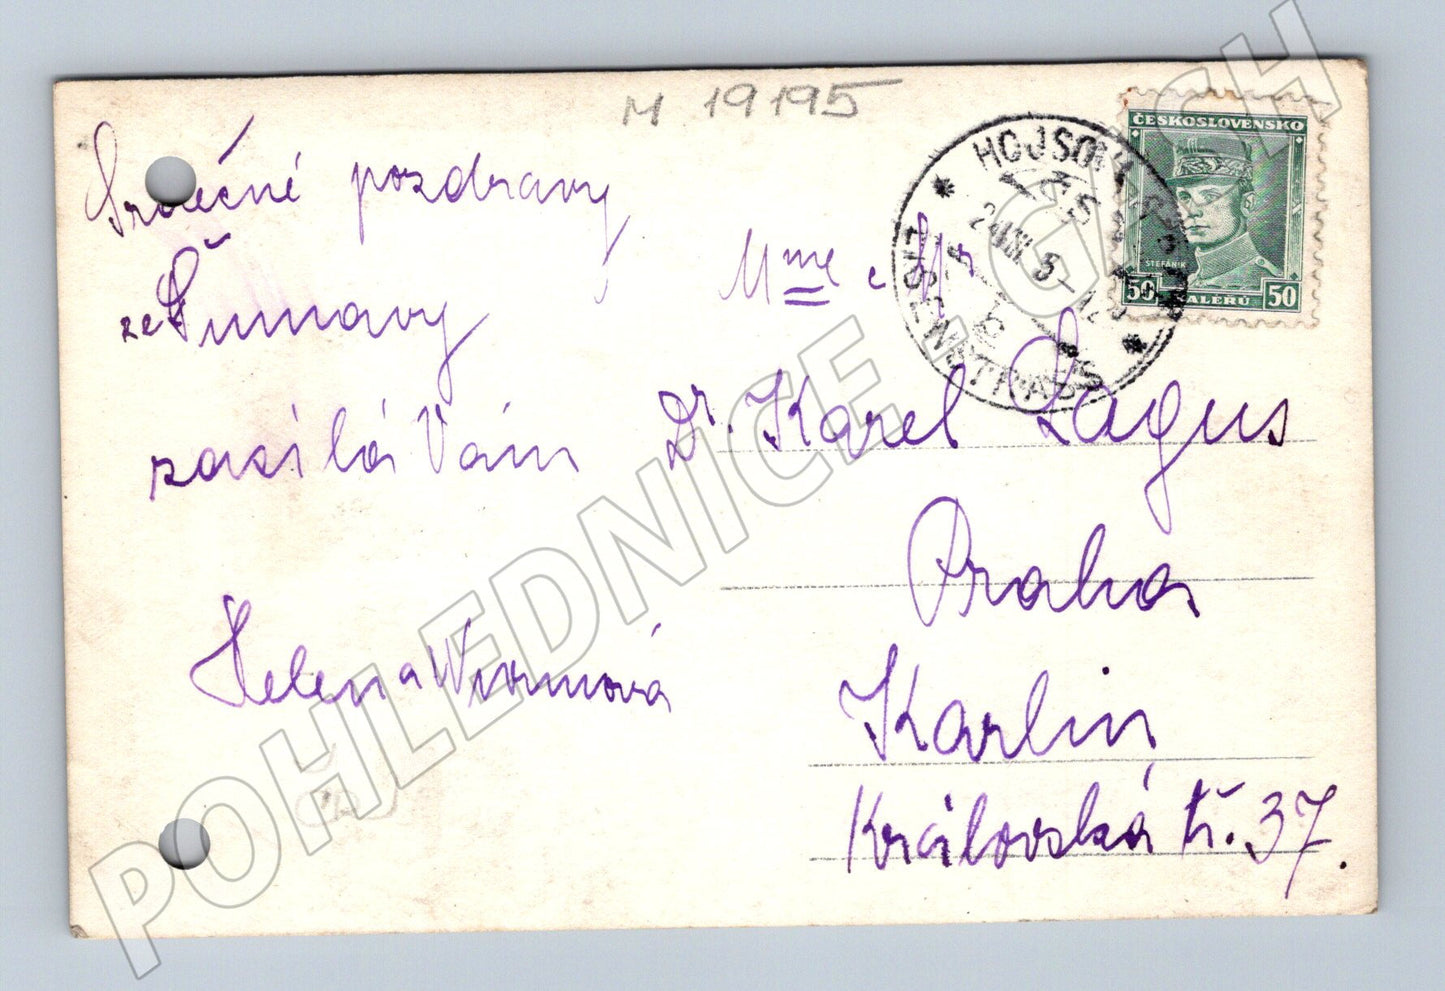 M 19195
Srdečné pozdravy
ze Šumavy
zasílá Vám
Helena
Mme e Mr
Dr. Karel Lagus
Praha
Karlin
Královská tř. 37.
ČESKOSLOVENSKO
ŠTEFÁNIK
50 HALÉŘŮ 50
HOJSOVA STRÁŽ
EISENSTRASS
POHLEDNICE.GACH